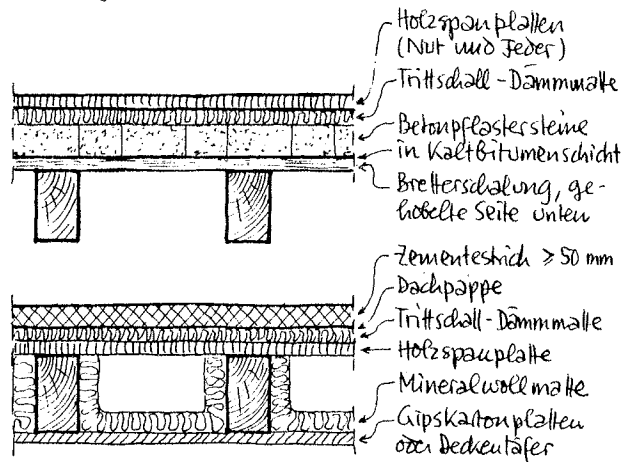 Holzspanplatten
(Nut und Feder)
Trittschall-Dämmmatte
Betonpflastersteine
in Kaltbitumenschicht
Bretterschalung, ge-
hobelte Seite unten
Zementestrich ≥ 50 mm
Dachpappe
Trittschall-Dämmmatte
Holzspanplatte
Mineralwollmatte
Gipskartonplatten
oder Deckentäfer